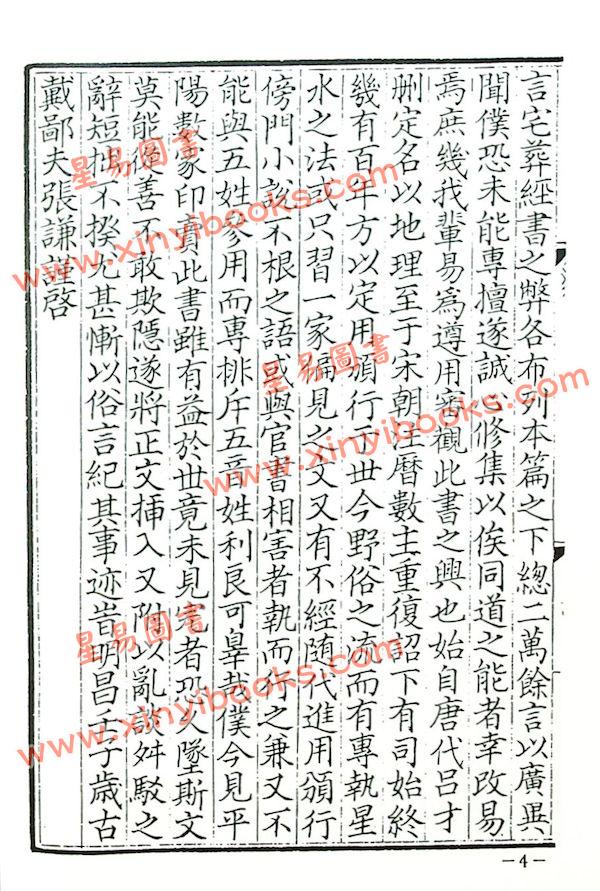 言宅葬經書之弊各布列本篇之下總二萬餘言以廣異
聞僕恐未能專擅遂誠心修集以俟同道之能者幸改易
焉庶幾我輩易為遵用審觀此書之興也始自唐代呂才
刪定名以地理至于宋朝注曆數主重復詔下有司始終
幾有百年方以定用頒行于世今野俗之流而有專執星
水之法或只習一家偏見之文又有不經随代進用頒行
傍門小說不根之語或與官書相害者執而行之兼又不
能與五姓參用而專排斥五音姓利良可辠哉僕今見平
陽數家印賣此書雖有益於世竟未見完者恐久墜斯文
莫能盡善不敢欺隱遂將正文揷入又附以亂談舛駁之
辭短拙不揆尤甚慚以俗言紀其事迹旹明昌壬子歲古
戴鄙夫張謙謹啓
星易圖書
www.xinyibooks.com
星易圖書
www.xinyibooks.com
星易圖書
www.xinyibooks.com
-4-